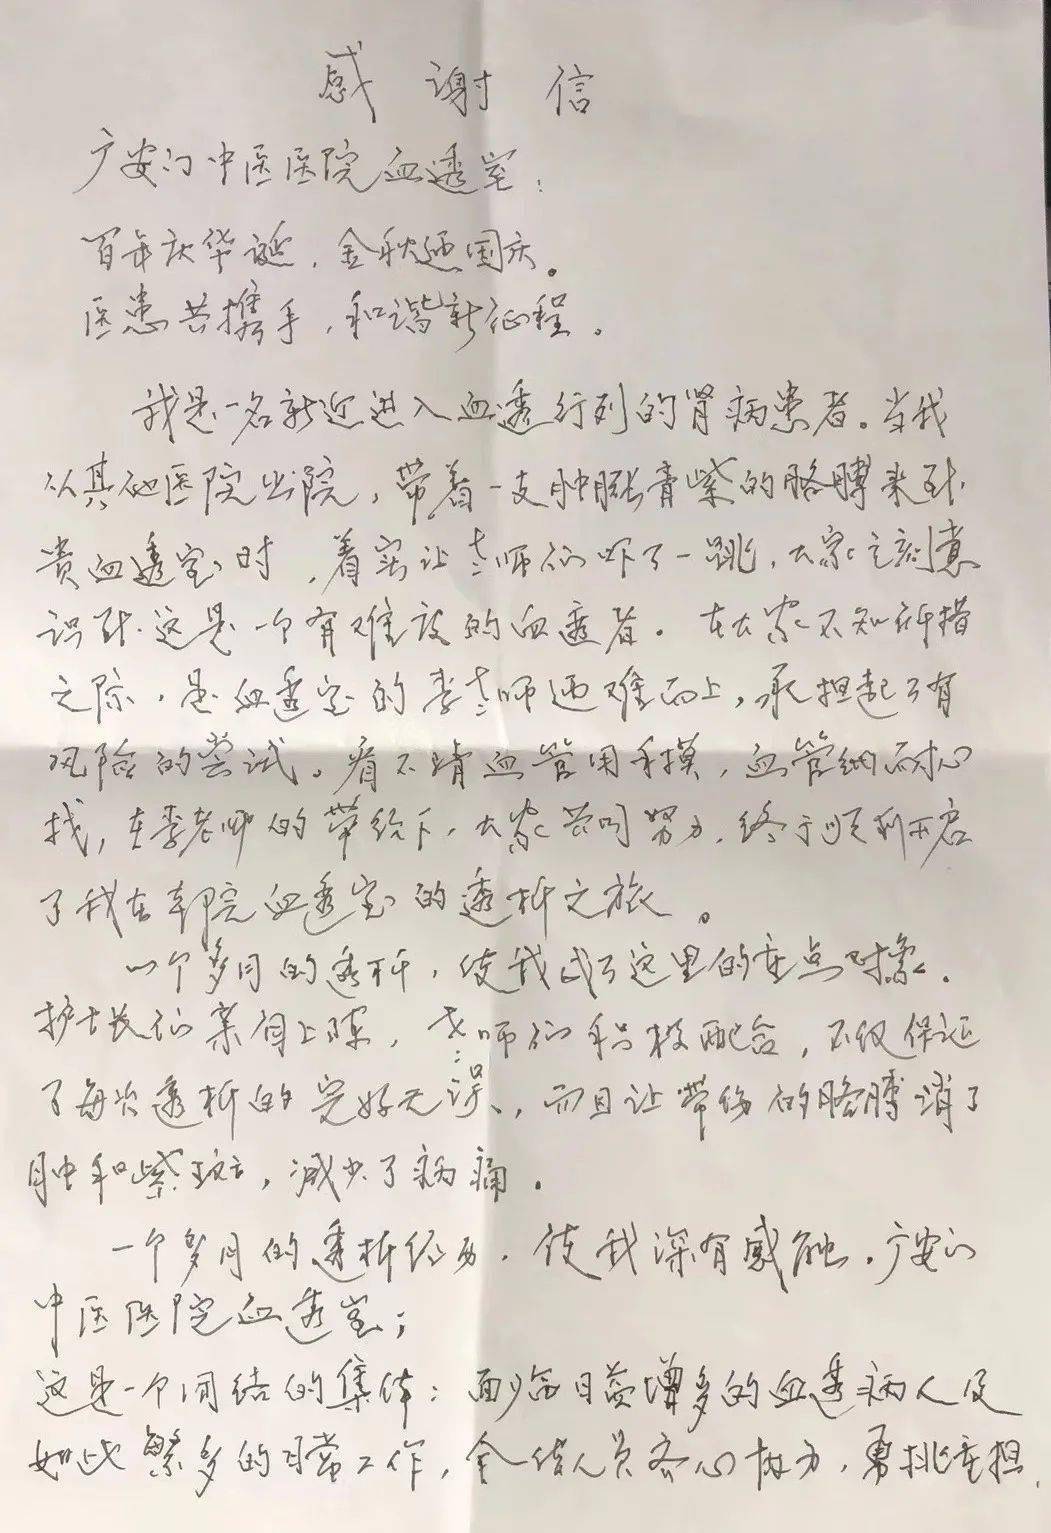 感谢信
广安门中医医院血透室：
百年庆华诞，金秋迎国庆。
医患共携手，和谐新征程。
我是一名新近进入血透行列的肾病患者。当我
从其他医院出院，带着一支肿胀青紫的胳膊来到
贵血透室时，着实让老师们吓了一跳，大家立刻意
识到这是一个有难度的血透者。在大家不知所措
之际，是血透室的李老师迎难而上，承担起了有
风险的尝试。看不清血管用手摸，血管细而耐心
找，在李老师的带领下，大家共同努力，终于顺利开启
了我在本院血透室的透析之旅。
一个多月的透析，使我成了这里的重点对象。
护士长们亲自上阵，老师们积极配合，不仅保证
了每次透析的完好无误，而且让带伤的胳膊消了
肿和紫斑，减少了病痛。
一个多月的透析经历，使我深有感触。广安门
中医医院血透室；
这是一个团结的集体：面临日益增多的血透病人及
如此繁多的日常工作，全体人员齐心协力，勇挑重担，